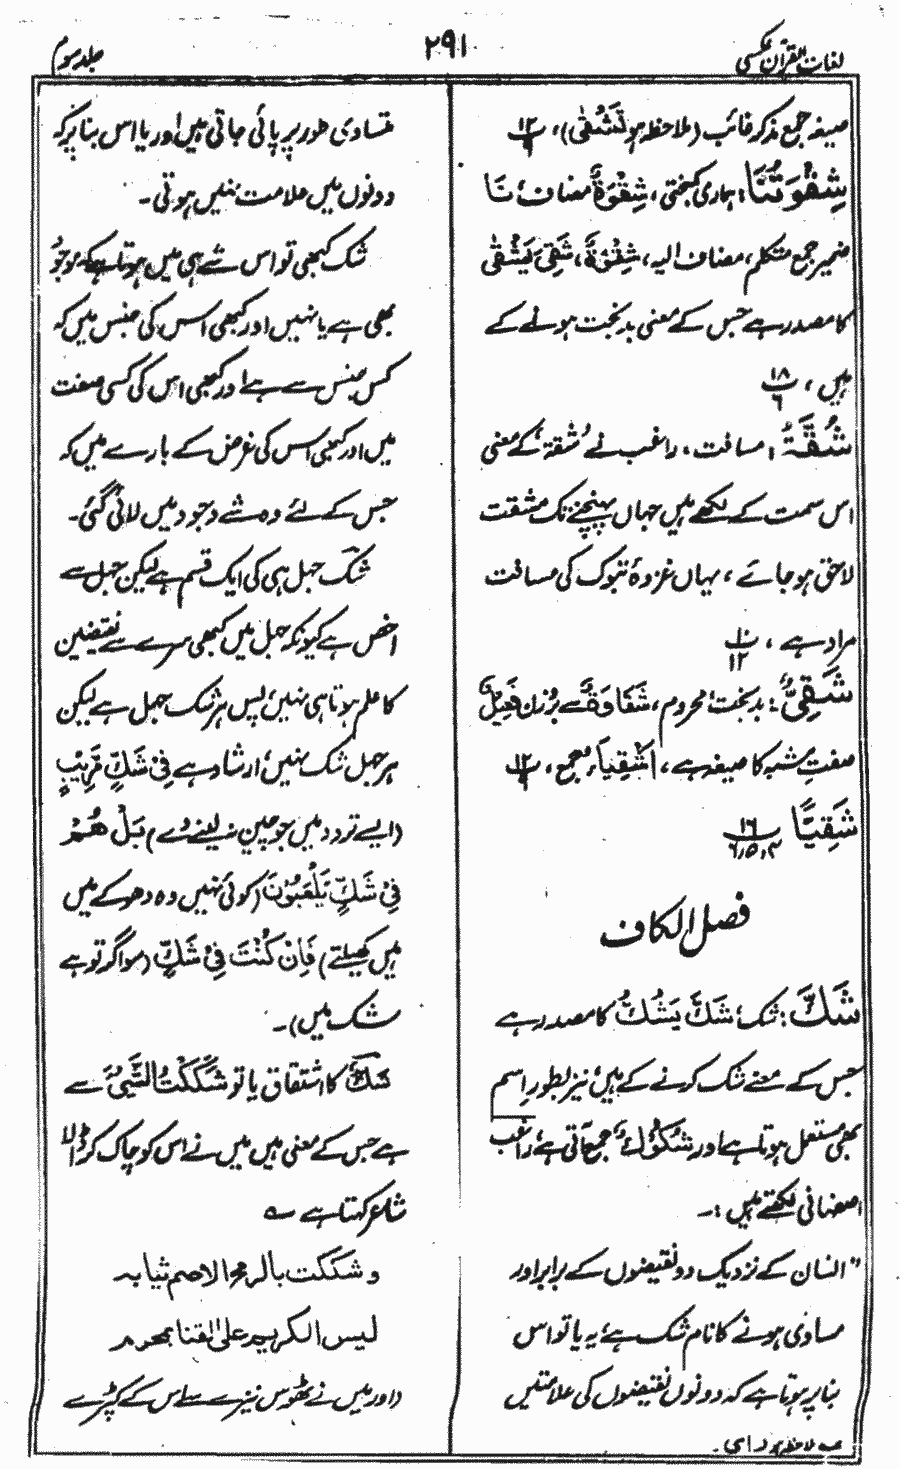 لغات القرآن عکسی
۲۹۱
جلد سوم
صیغہ جمع مذکر غائب (ملاحظہ ہو تَشْقٰی)، پ۱۲ ۹
شِقْوَتُنَا: ہماری کمبختی، شِقْوَۃٌ مضاف، نَا
ضمیر جمع متکلم، مضاف الیہ، شِقْوَۃٌ، شَقِیَ یَشْقٰی
کا مصدر ہے جس کے معنی بدبخت ہونے کے
ہیں، پ۱۸ ۶
شُقَّۃُ: مسافت، راغب نے شُقۃ، کے معنی
اس سمت کے لکھے ہیں جہاں پہنچنے تک مشقت
لاحق ہو جائے، یہاں غزوۂ تبوک کی مسافت
مراد ہے، پ۱۰ ۱۲
شَقِیٌّ: بدبخت، محروم، شَقَاوَۃٌ سے بروزن فَعِیْلٌ
صفت مشبہ کا صیغہ ہے، اَشْقِیَاءُ جمع، پ۱۲ ۹
شَقِیًّا پ۱۶ ۴،۵،۶
فصل الکاف
شَکَّ: شک، شَکَّ یَشُکُّ کا مصدر ہے
جس کے معنے شک کرنے کے ہیں، نیز بطور اسم
بھی مستعمل ہوتا ہے اور شُکُوْکٌ جمع آتی ہے، راغب
اصفہانی لکھتے ہیں:۔
"انسان کے نزدیک دو نقیضوں کے برابر اور
مساوی ہونے کا نام شک ہے، یہ یا تو اس
بنا پر ہوتا ہے کہ دونوں نقیضوں کی علامتیں
متساوی طور پر پائی جاتی ہیں، اور یا اس بنا پر کہ
دونوں میں علامت نہیں ہوتی۔
شک کبھی تو اس شے ہی میں ہوتا ہے کہ موجود
بھی ہے یا نہیں اور کبھی اس کی جنس میں کہ
کس جنس سے ہے اور کبھی اس کی کسی صفت
میں اور کبھی اس کی غرض کے بارے میں کہ
جس کے لئے وہ شے وجود میں لائی گئی۔
شک جہل ہی کی ایک قسم ہے لیکن جہل سے
اخص ہے کیونکہ جہل میں کبھی سرے سے نقیضین
کا علم ہوتا ہی نہیں، پس ہر شک جہل ہے لیکن
ہر جہل شک نہیں، ارشاد ہے فِیْ شَکٍّ مُّرِیْبٍ
(ایسے تردد میں جو چین نہ لینے دے) بَلْ ھُمْ
فِیْ شَکٍّ یَّلْعَبُوْنَ (کوئی نہیں وہ دھوکے میں
ہیں کھیلتے) فَاِنْ کُنْتَ فِیْ شَکٍّ (سو اگر تو ہے
شک میں)۔
شک کا اشتقاق یا تو شَکَکْتُ الشَّیْءَ سے
ہے جس کے معنی ہیں میں نے اس کو چاک کر ڈالا
شاعر کہتا ہے ؎
و شککت بالرمح الاصم ثیابہ
لیس الکریم علی القنا بمحرم
(اور میں نے ٹھوس نیزے سے اس کے کپڑے